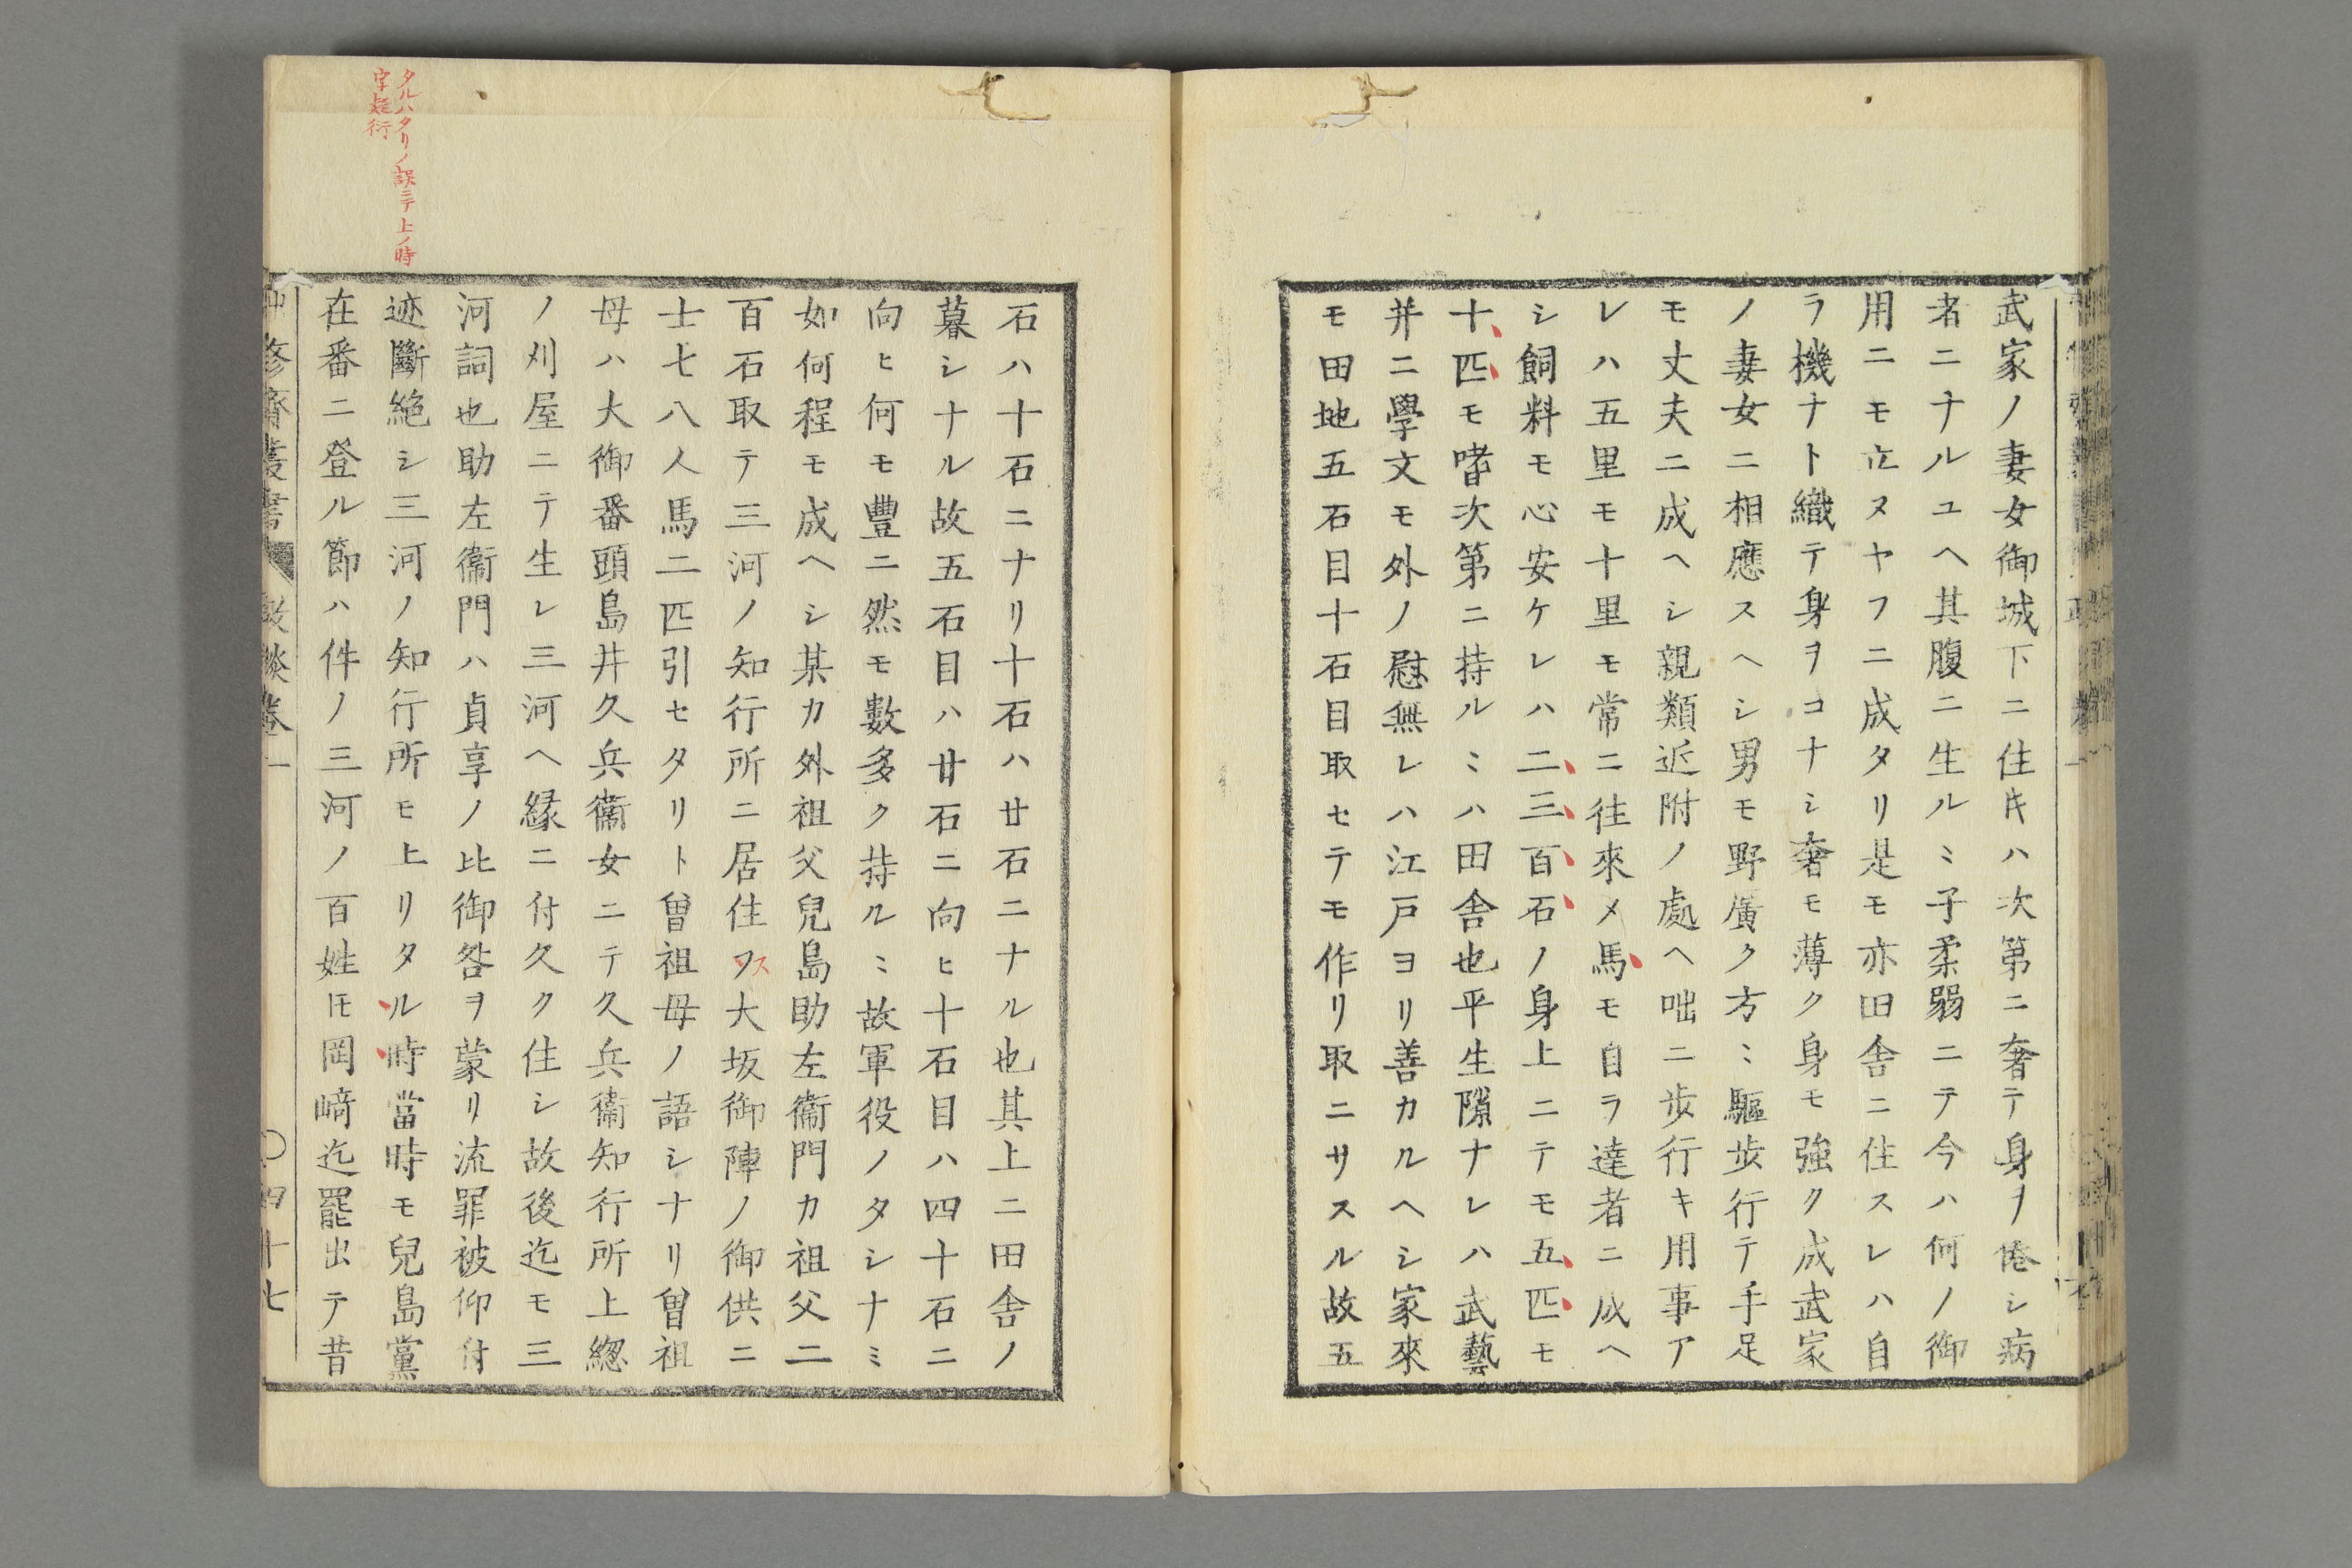 武家ノ妻女御城下ニ住キハ次第ニ奢テ身ヲ倦シ病
者ニナルユヘ其腹ニ生ルミ子柔弱ニテ今ハ何ノ御
用ニモ立ヌヤフニ成タリ是モ亦田舎ニ住スレハ自
ラ機ナト織テ身ヲコナシ奢モ薄ク身モ強ク成武家
ノ妻女ニ相應スヘシ男モ野廣ク方ミ驅歩行テ手足
モ丈夫ニ成ヘシ親類近附ノ處ヘ咄ニ歩行キ用事ア
レハ五里モ十里モ常ニ往來メ馬モ自ラ達者ニ成ヘ
シ飼料モ心安ケレハ二三百石ノ身上ニテモ五匹モ
十匹モ嗜次第ニ持ルミハ田舎也平生隙ナレハ武藝
并ニ學文モ外ノ慰無レハ江戸ヨリ善カルヘシ家來
モ田地五石目十石目取セテモ作リ取ニサスル故五
石ハ十石ニナリ十石ハ廿石ニナル也其上ニ田舎ノ
暮シナル故五石目ハ廿石ニ向ヒ十石目ハ四十石ニ
向ヒ何モ豐ニ然モ數多ク持ルミ故軍役ノタシナミ
如何程モ成ヘシ某カ外祖父兒島助左衞門カ祖父二
百石取テ三河ノ知行所ニ居住ヲス大坂御陣ノ御供ニ
士七八人馬二匹引セタリト曽祖母ノ語シナリ曽祖
母ハ大御番頭島井久兵衞女ニテ久兵衞知行所上総
ノ刈屋ニテ生レ三河ヘ縁ニ付久ク住シ故後迄モ三
河詞也助左衞門ハ貞享ノ比御咎ヲ蒙リ流罪被仰付
迹斷絶シ三河ノ知行所モ上リタル時當時モ兒島黨
在番ニ登ル節ハ件ノ三河ノ百姓𪜈岡﨑迄罷出テ昔
タルハタリノ誤ニテ上ノ時
字疑衍
修齋叢書 政談卷一 〇四十七